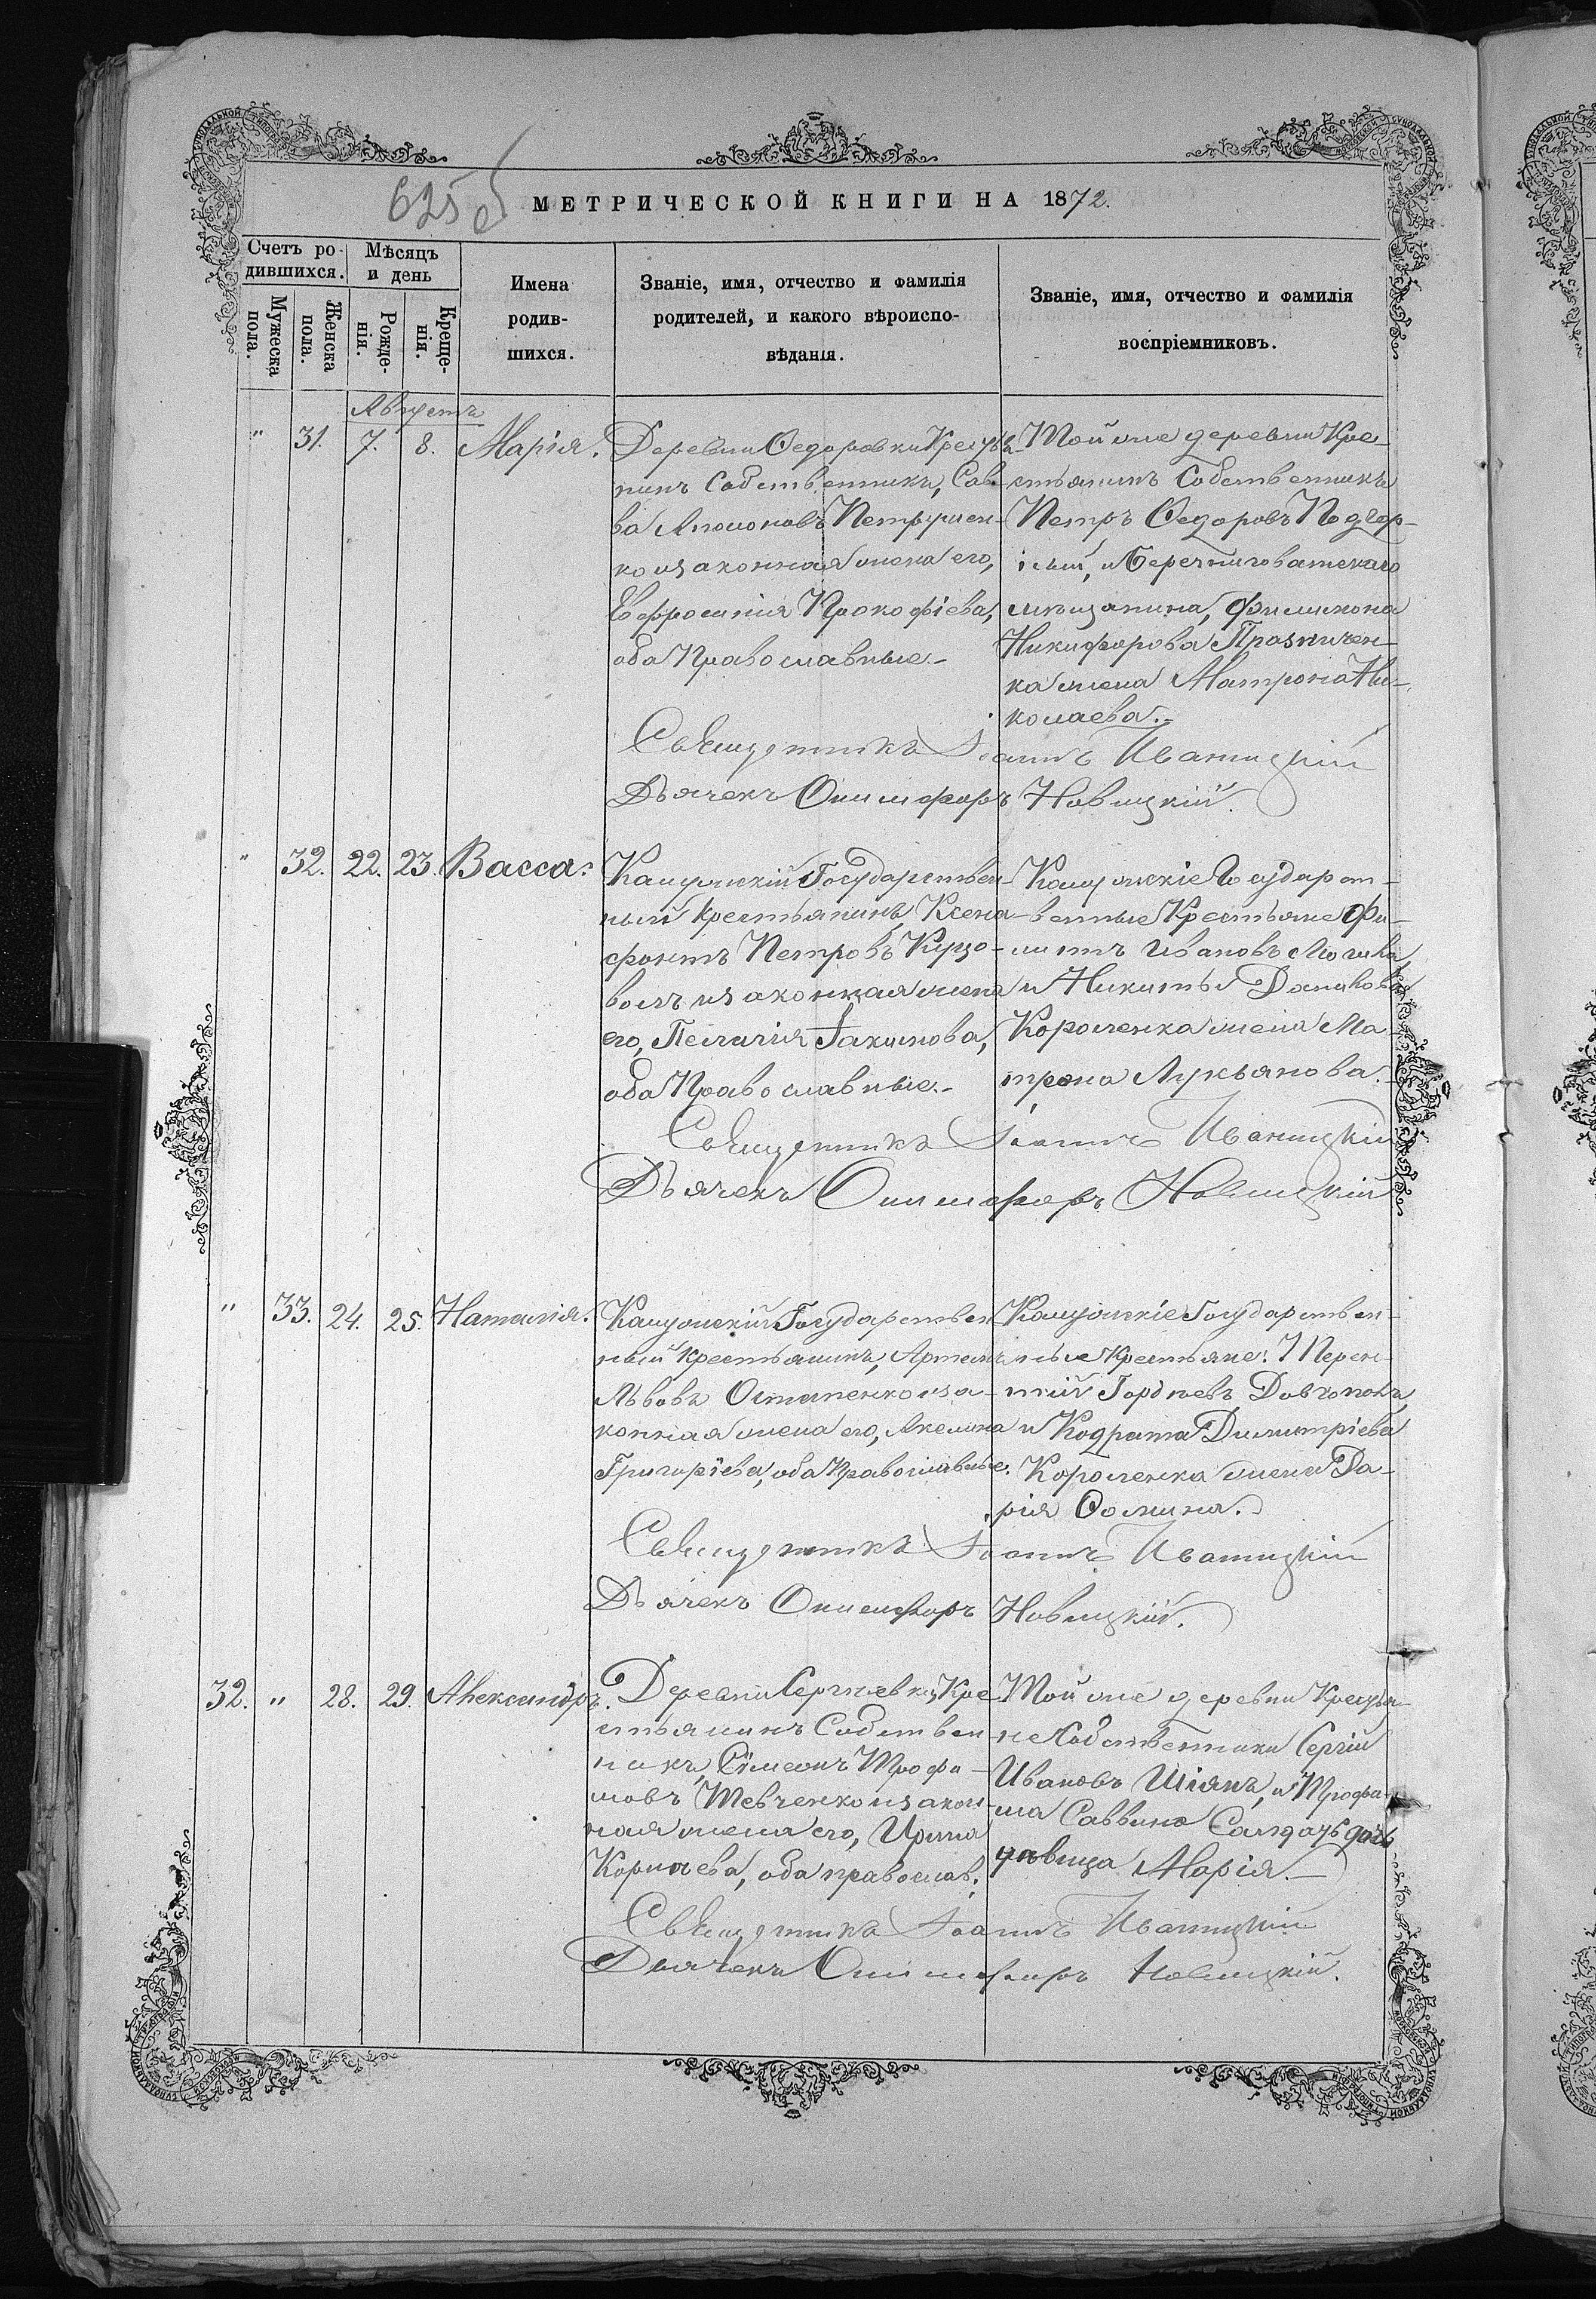 625 об
МЕТРИЧЕСКОЙ КНИГИ НА 1872.
Счетъ ро-
дившихся.
Мѣсяцъ
и день
Мужеска
пола.
Женска
пола.
Рожде-
нія.
Креще-
нія.
Имена
родив-
шихся.
Званіе, имя, отчество и фамилія
родителей, и какого вѣроиспо-
вѣданія.
Званіе, имя, отчество и фамилія
воспріемниковъ.
Августъ
" 31. 7. 8. Марія.
Деревни Ѳедоровки Крестья-
нинъ Собственникъ, Сав-
ва Петрушен-
ко и законная жена его,
Евфросинія Прокофіева,
оба Православные.-
Той же деревни Кре-
стьянинъ Собственникъ
Петръ Ѳедоровъ Подгор-
ный, и
мѣщанина, Филимона
Никифорова
ка жена Матрона Ни-
колаева.-
Священникъ Іоаннъ Иваницкій
Дьячекъ Онисифоръ Новицкій.
" 32. 22. 23. Васса.
Государствен-
ный крестьянинъ, Ксено-
фонтъ Петровъ Куцо-
волъ и законная жена
его, Пелагія Іакимова,
оба Православные.-
Государст-
венные Крестьяне Фи-
липпъ Ивановъ
и Никиты Данилова
Короленка жена Ма-
трона Лукьянова.-
Священникъ Іоаннъ Иваницкій
Дьячекъ Онисифоръ Новицкій
" 33. 24. 25. Наталія.
Государствен-
ный крестьянинъ, Артемъ
Львовъ Остапенко и за-
конная жена его, Акелина
Григоріева, оба Православные.
Государствен-
ные Крестьяне: Терен-
тій Гордѣевъ Довгополъ,
и Кодрата Димитріева
Короленка жена Да-
рія Ѳомина.
Священникъ Іоаннъ Иваницкій
Дьячекъ Онисифоръ Новицкій.
32. " 28. 29. Александръ.
Деревни Сергѣевки, Кре-
стьянинъ Собствен-
никъ, Симеонъ Трофи-
мовъ Шевченко и закон-
ная жена его, Ирина
Корнѣева, оба православ.
Той же деревни Крестья-
не Собственники Сергій
Ивановъ Шіянъ, и Трофи-
ма Саввина дочь
дѣвица Марія.-
Священникъ Іоаннъ Иваницкій
Дьячекъ Онисифоръ Новицкій.